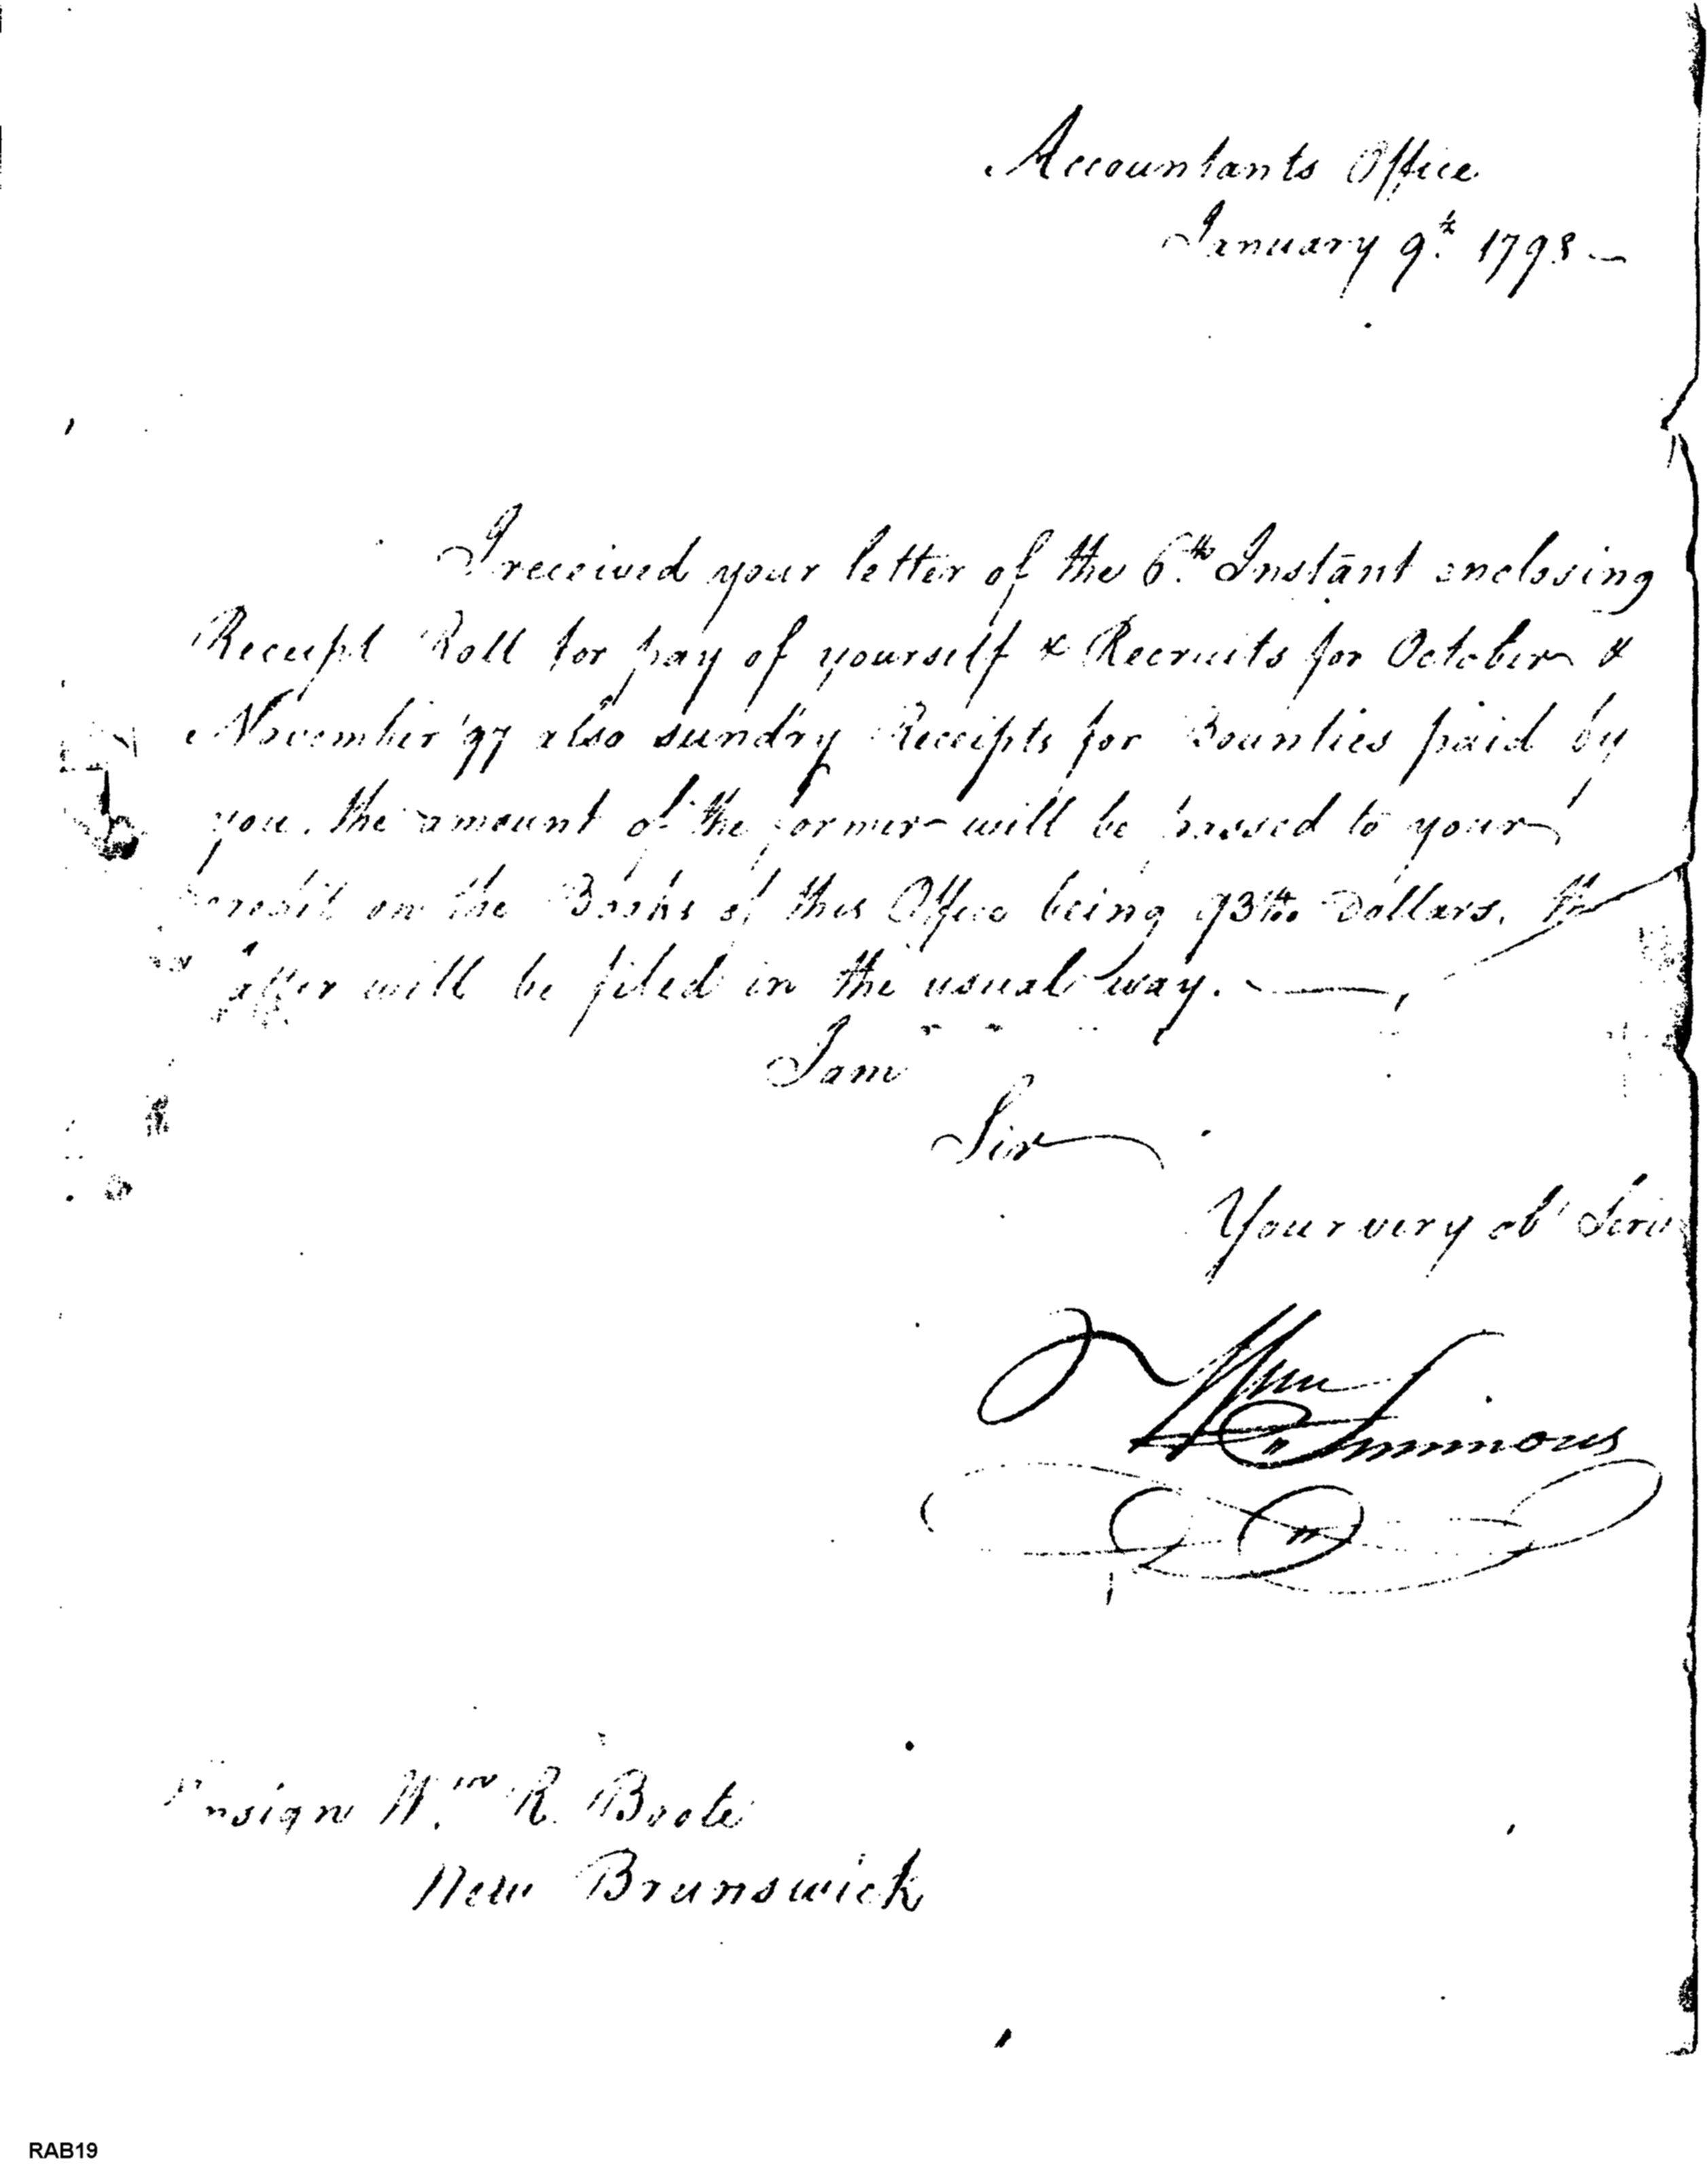 Accountants Office
January 9th. 1798 —
I received your letter of the 6th. Instant enclosing
Receipt Roll for pay of yourself & Recruits for October &
November '97 also sundry Receipts for Bounties paid by
you. the amount of the former will be passed to your
credit on the Books of this Office being Dollars. the
latter will be filed in the usual way. —
I am
Sir
Your very obt Serv
Wm Simmons
Ensign Wm. R. Boote
New Brunswick
RAB19